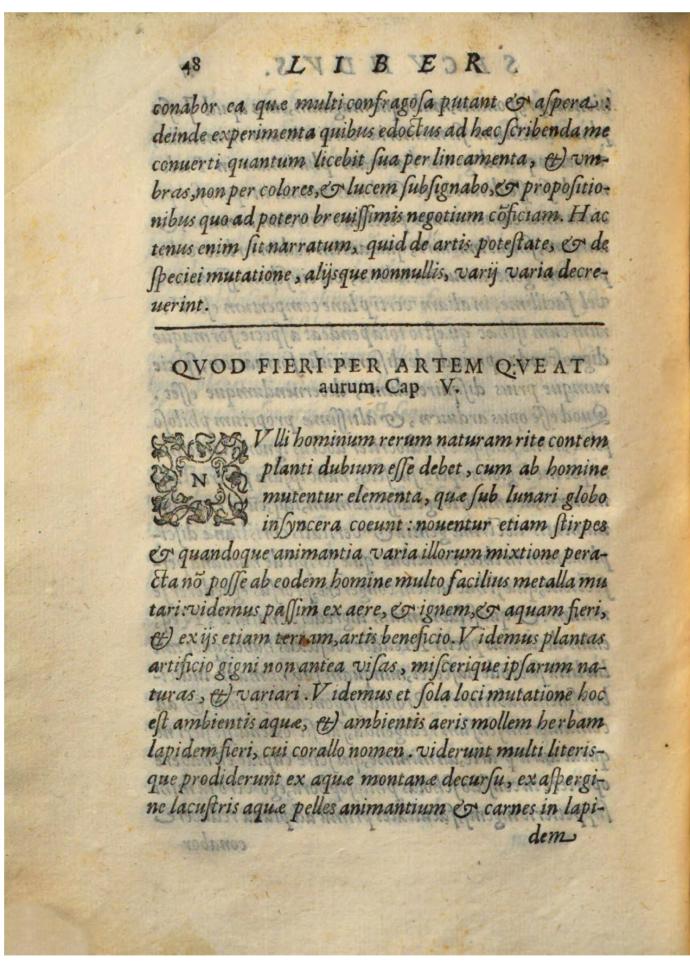 48 LIBER
conabor ea quæ multi confragosa putant & aspera :
deinde experimenta quibus edoctus ad hæc scribenda me
conuerti quantum licebit sua per lineamenta, & vm-
bras, non per colores, & lucem subsignabo, & propositio-
nibus quo ad potero breuissimis negotium cõficiam. Hac
tenus enim sit narratum, quid de artis potestate, & de
speciei mutatione, alijsque nonnullis, varij varia decre-
uerint.
QVOD FIERI PER ARTEM QVEAT
aurum. Cap V.
NVlli hominum rerum naturam rite contem
planti dubium esse debet, cum ab homine
mutentur elementa, quæ sub lunari globo
insyncera coeunt : nouentur etiam stirpes
& quandoque animantia varia illorum mixtione pera-
cta nõ posse ab eodem homine multo facilius metalla mu
tari: videmus passim ex aere, & ignem, & aquam fieri,
& ex ijs etiam terram, artis beneficio. Videmus plantas
artificio gigni non antea visas, miscerique ipsarum na-
turas, & variari. Videmus et sola loci mutatione hoc
est ambientis aquæ, & ambientis aeris mollem herbam
lapidem fieri, cui corallo nomen. viderunt multi literis-
que prodiderunt ex aquæ montanæ decursu, ex aspergi-
ne lacustris aquæ pelles animantium & carnes in lapi-
dem